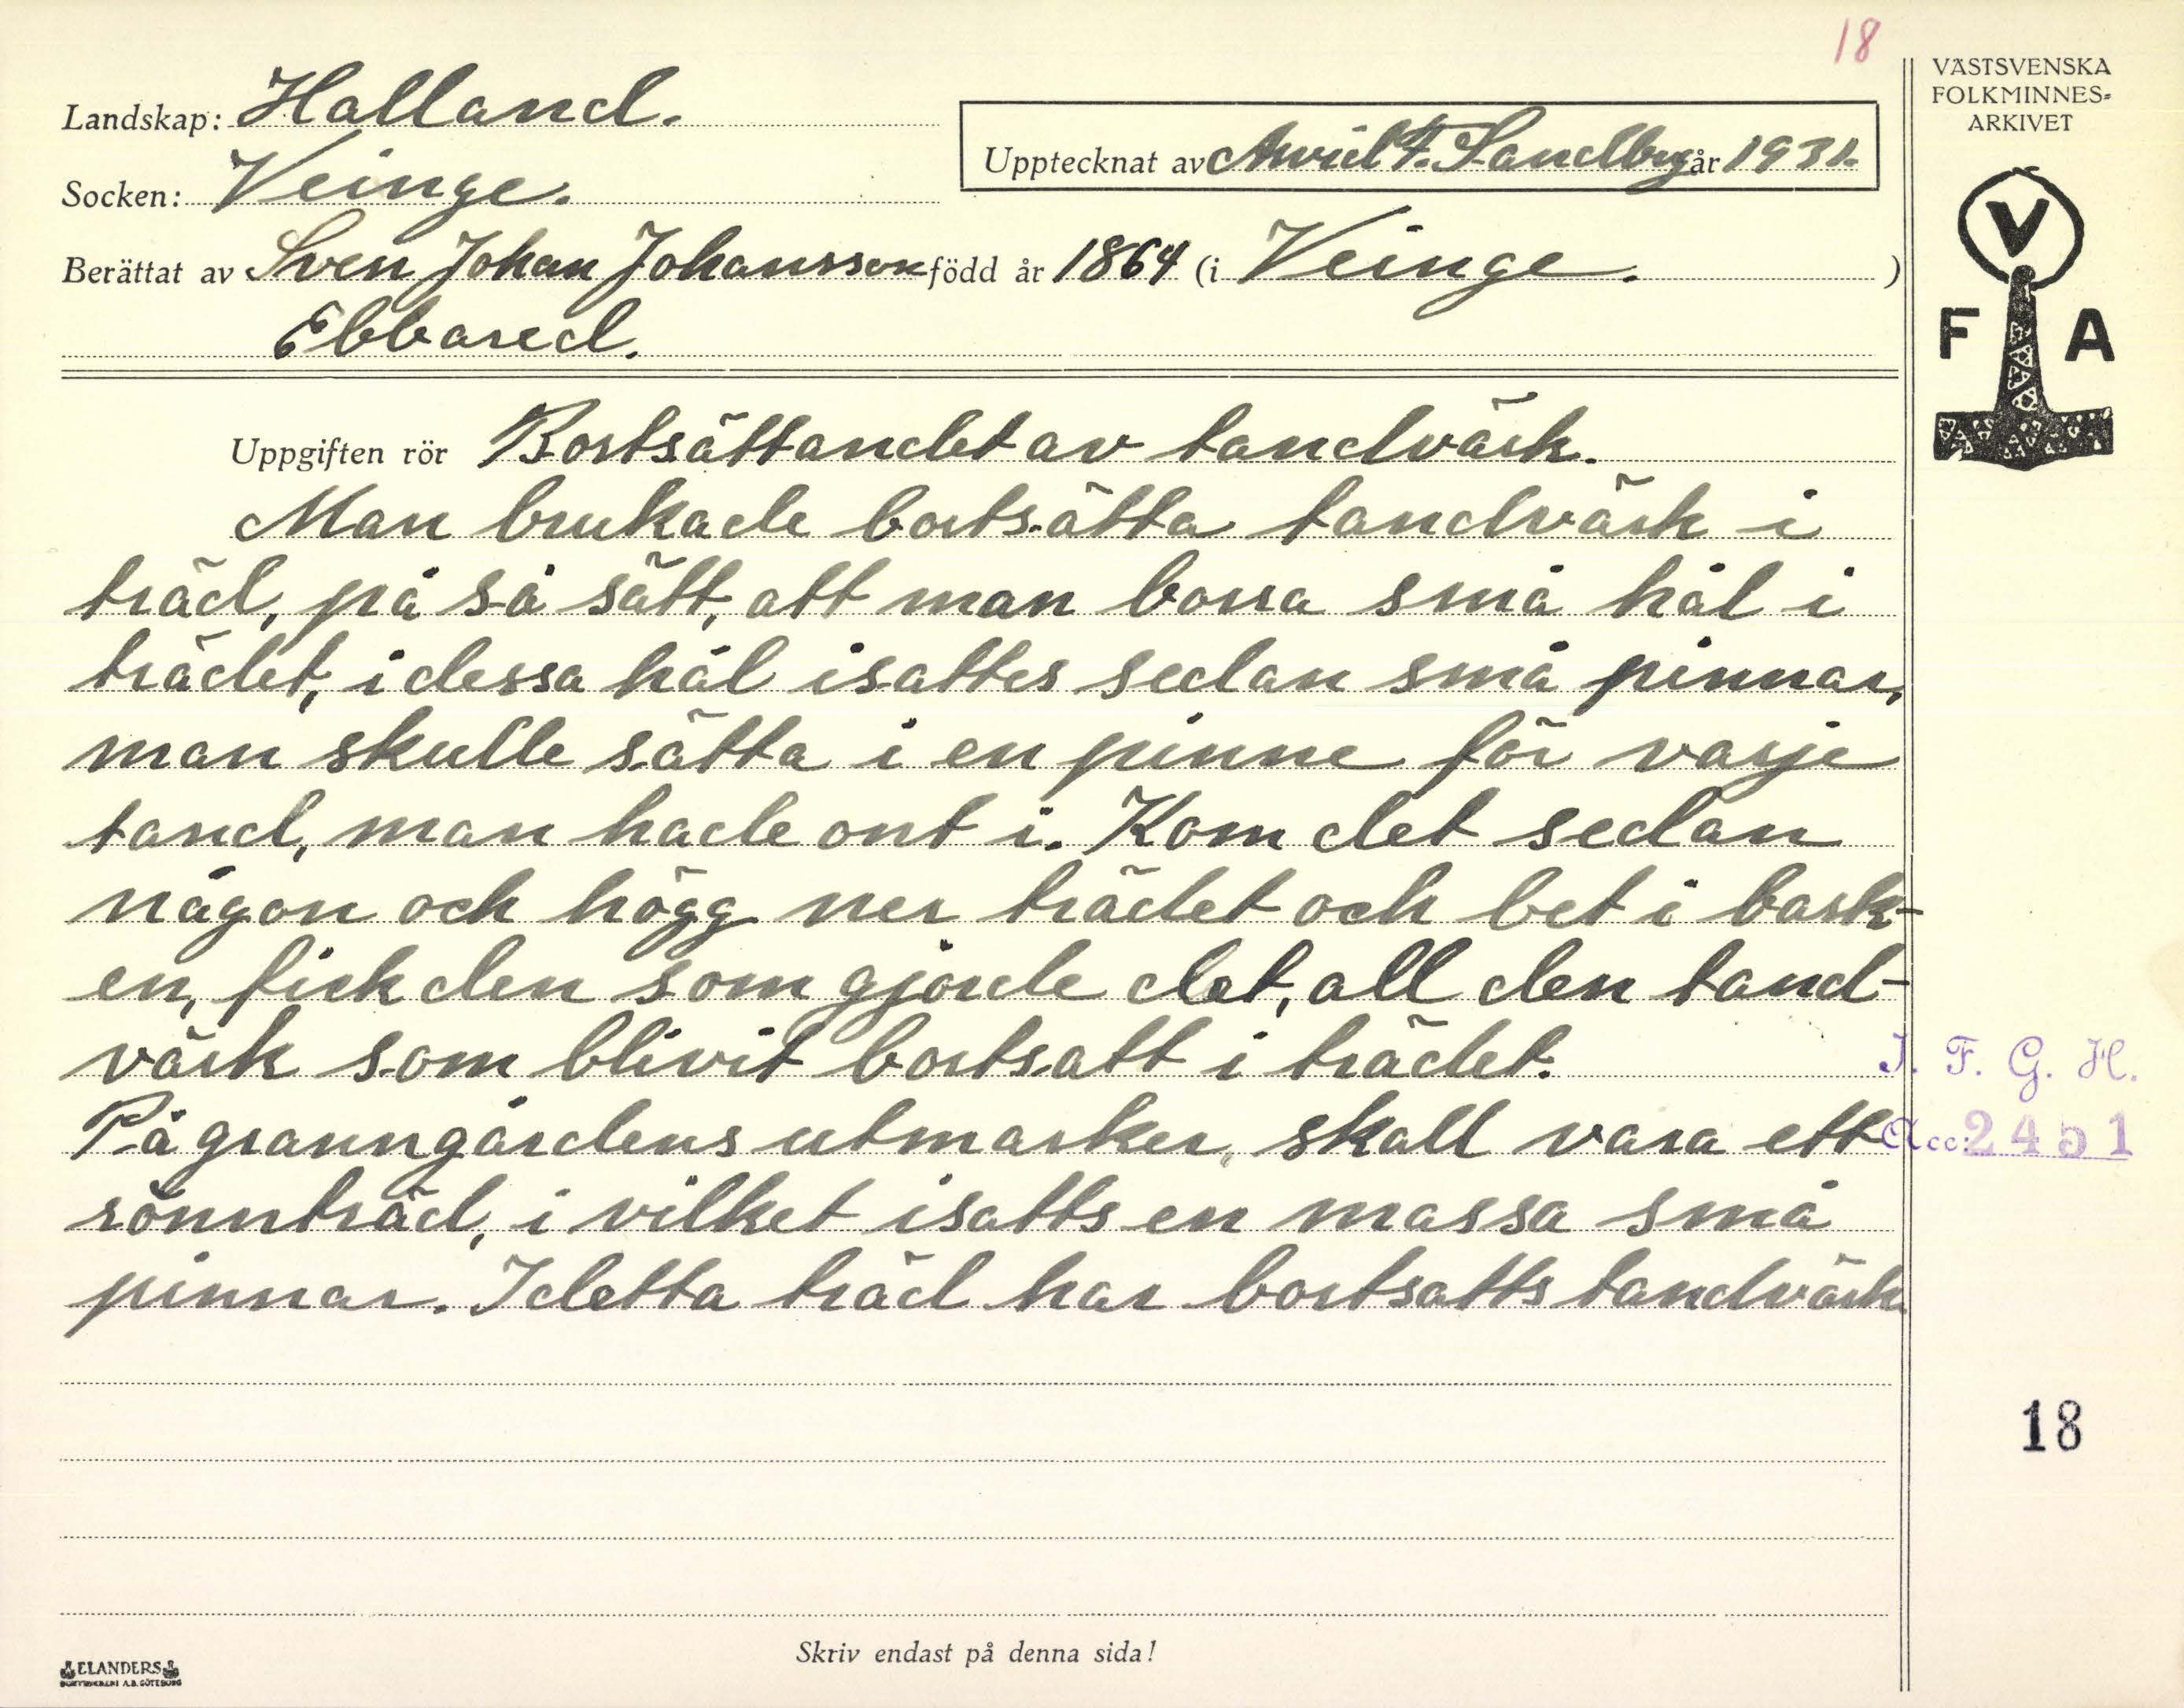 18
VÄSTSVENSKA
FOLKMINNES-
ARKIVET
Landskap: Halland.
Upptecknat av Arvid F. Sandberg år 1931.
Socken: Veinge.
Berättat av Sven Johan Johansson född år 1864 (i Veinge. )
Ebbared.
V
F A
Uppgiften rör Bortsättandet av tandvärk.
Man brukade bortsätta tandvärk i
träd, på så sätt, att man borra små hål i
trädet, i dessa hål isattes sedan små pinnar,
man skulle sätta i en pinne för varje
tand, man hade ont i. Kom det sedan
någon och högg ner trädet och bet i bark-
en, fick den som gjorde det, all den tand-
värk som blivit bortsatt i trädet.
På granngårdens utmarker, skall vara ett
rönnträd, i vilket isatts en massa små
pinnar. I detta träd har bortsatts tandvärk.
I. F. G. H.
Acc: 2451
18
Skriv endast på denna sida!
ELANDERS
BOKTRYCKERI A.B. GÖTEBORG